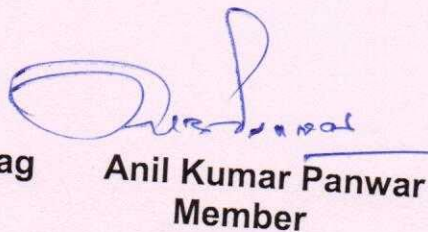 ag Anil Kumar Panwar
Member